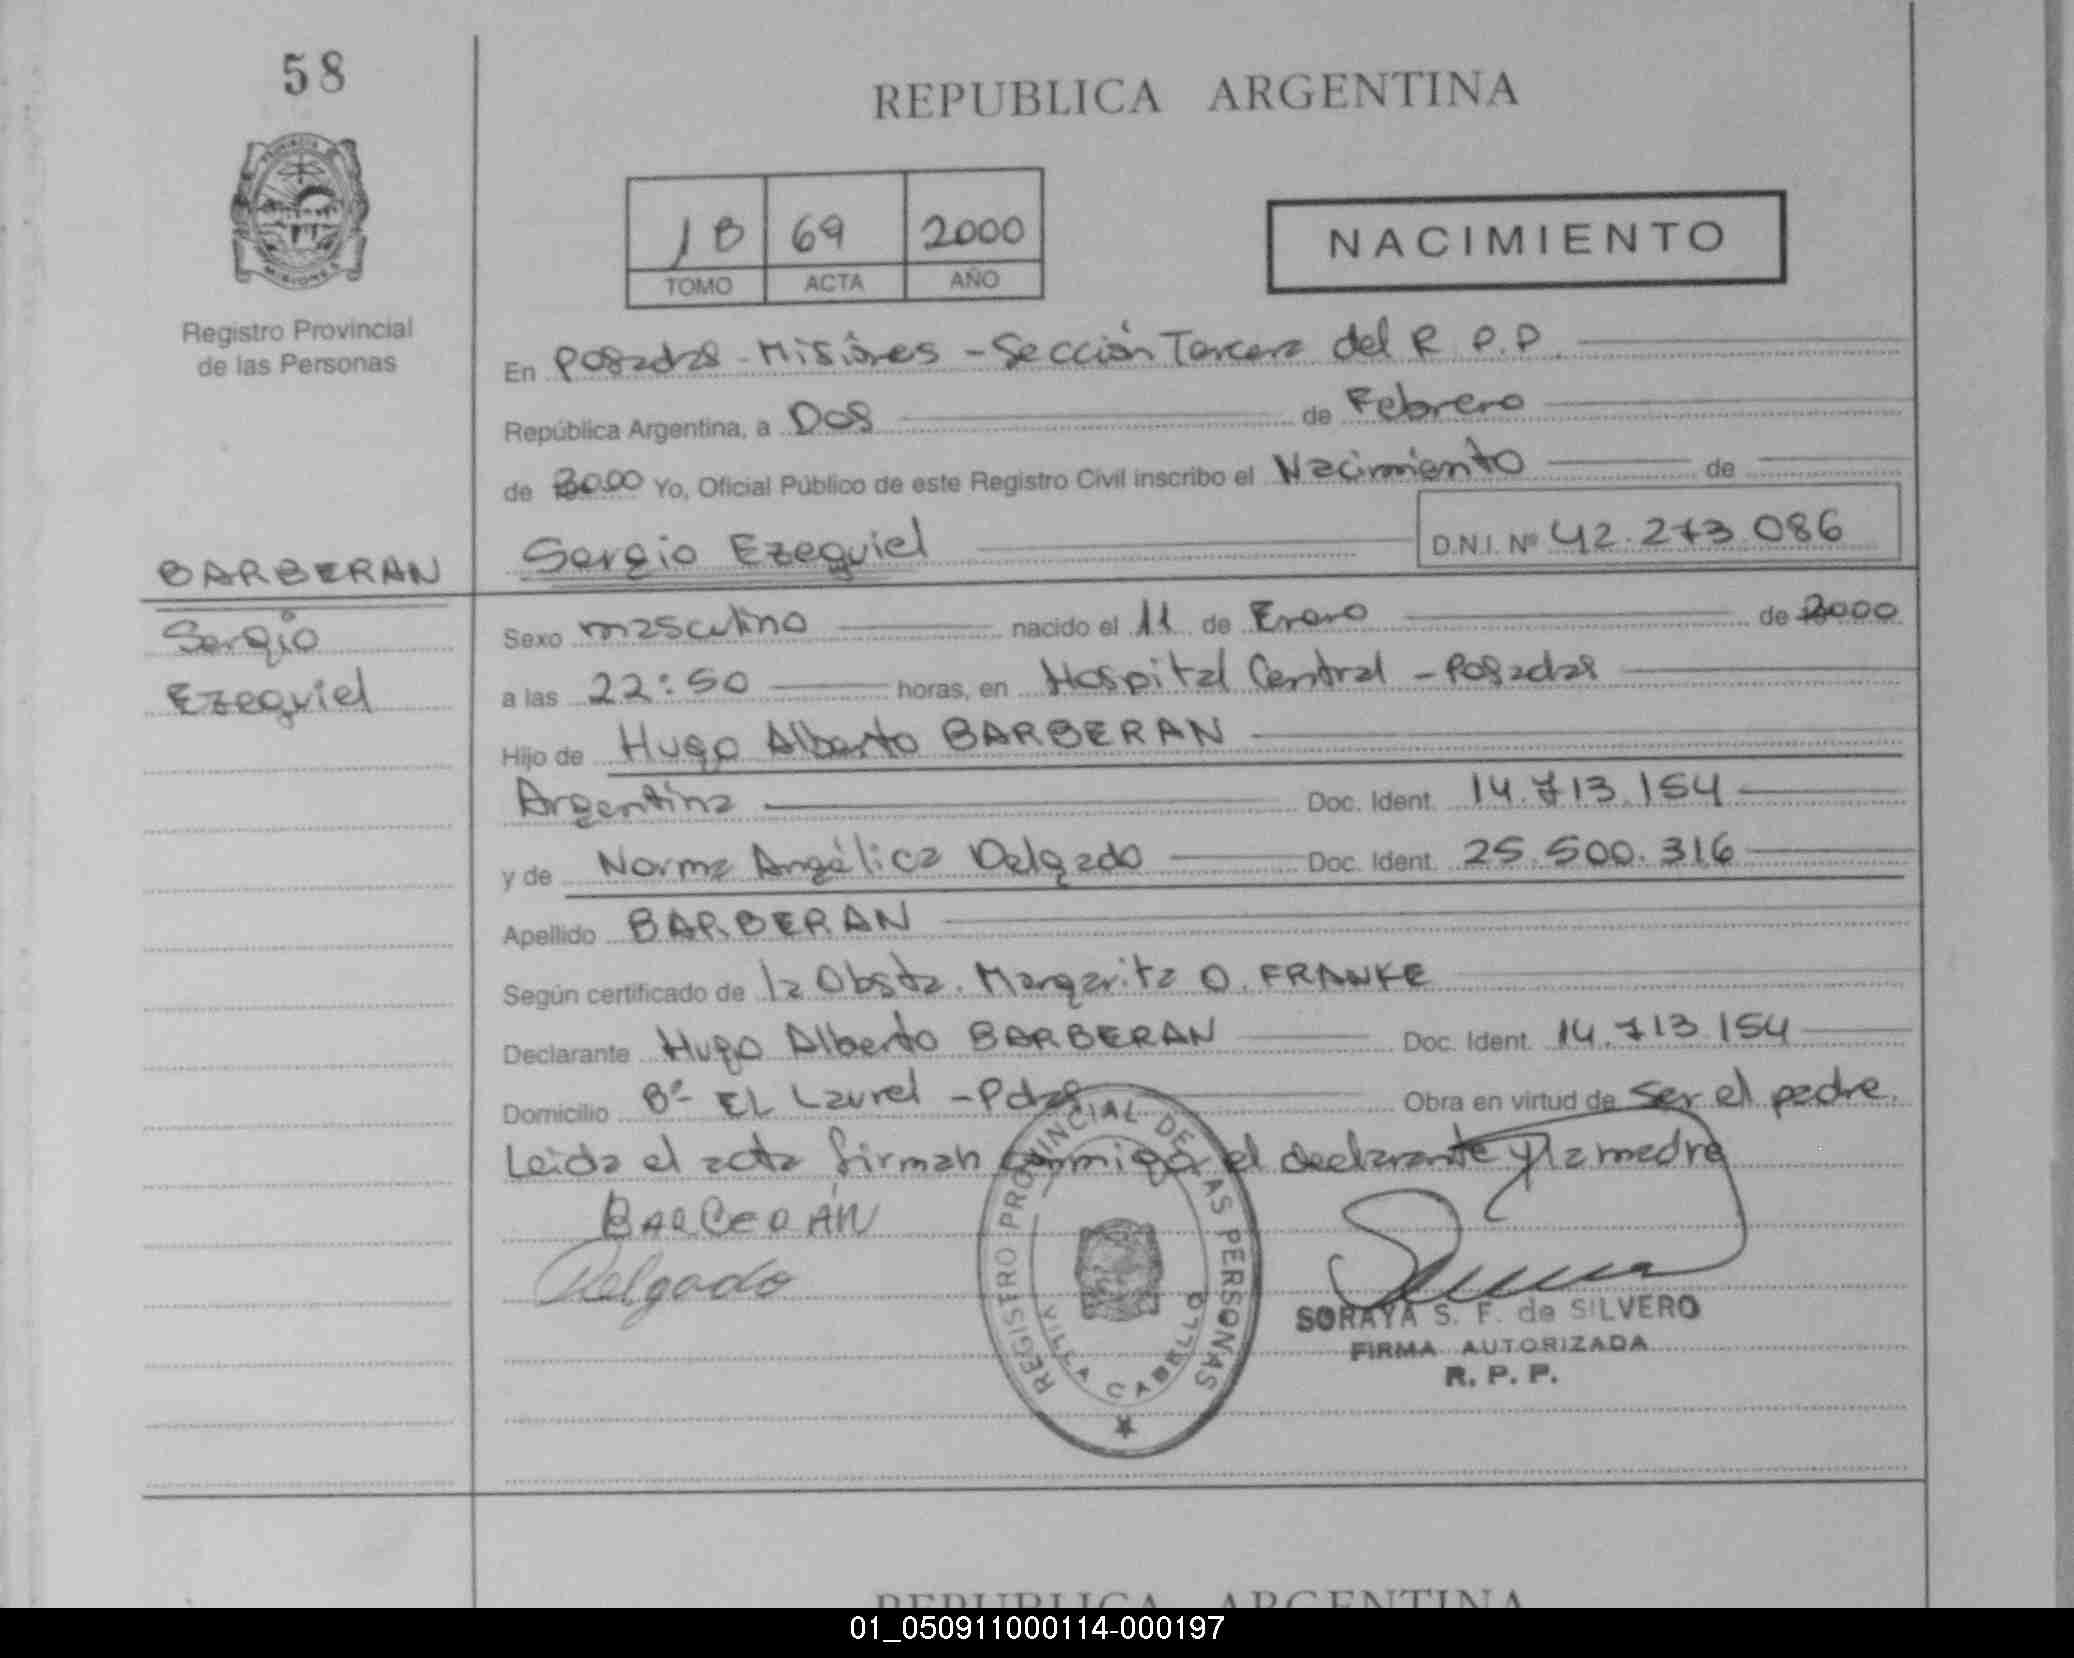 58
REPUBLICA ARGENTINA
PROVINCIA
MISIONES
Registro Provincial
de las Personas
1B 69 2000
TOMO ACTA AÑO
NACIMIENTO
En Posadas - Misiones - Sección Tercera del R.P.P.
República Argentina, a Dos de Febrero
de 2000 Yo, Oficial Público de este Registro Civil inscribo el Nacimiento de
Sergio Ezequiel D.N.I. Nº 42.273.086
BARBERAN
Sergio
Ezequiel
Sexo masculino nacido el 11 de Enero de 2000
a las 22:50 horas, en Hospital Central - Posadas
Hijo de Hugo Alberto BARBERAN
Argentina Doc. Ident. 14.713.154
y de Norma Angélica Delgado Doc. Ident. 25.500.316
Apellido BARBERAN
Según certificado de la Obsta. Margarita O. FRANKE
Declarante Hugo Alberto BARBERAN Doc. Ident. 14.713.154
Domicilio Bº EL Laurel - Pdas Obra en virtud de ser el padre.
Leida el acta firman conmigo el declarante y la madre
BARBERÁN
Delgado
REGISTRO PROVINCIAL DE LAS PERSONAS
VILLA CABELLO
SORAYA S. F. de SILVERO
FIRMA AUTORIZADA
R. P. P.
REPUBLICA ARGENTINA
01_050911000114-000197